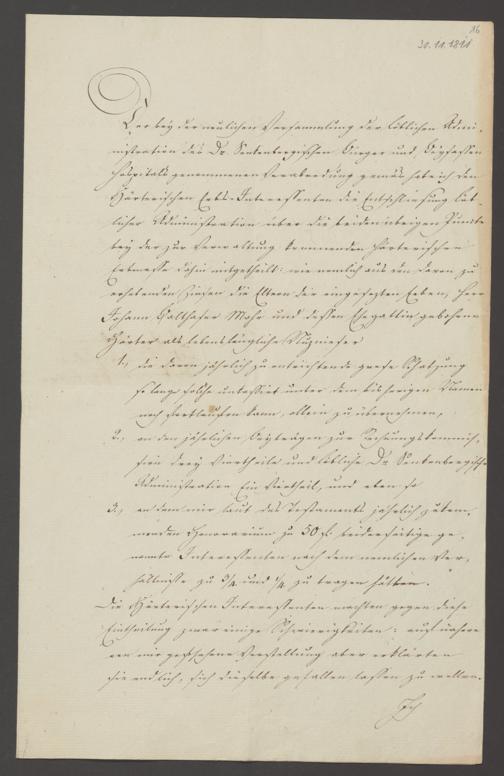 16
30.11.1811
Der bey der neulichen Versammlung der löblichen Admi-
nistration des Dr. Senkenbergischen Bürger und Beysassen
Hospitals genommenen Verabredung gemäss habe ich den
Härterischen Erbs-Interessenten die Entschliessung löb-
licher Administration über die beiden übrigen Punkte
bey der zur Verwaltung kommenden Härterischen
Erbmasse dahin mitgetheilt: wie nemlich aus den davon zu
erhebenden Zinsen die Eltern der eingesezten Erben, Herr
Johann Balthasar Mohr und dessen Ehegattin, gebohrene
Härter als lebenslängliche Nuzniesser
1., die davon jährlich zu entrichtende Schatzung
so lange solche unter dem bisherigen Namen
noch fortlaufen kann, allein zu übernehmen,
2., an den jährlichen Beyträgen zur Rechnungskommis-
sion drey Viertheile und löbliche Dr. Senkenbergische
Administration Ein Viertheil, und eben so
3., an dem mir laut des Testaments jährlich zukom-
menden Honorarium zu 50 f. beiderseitige ge-
nannte Interessenten nach dem nemlichen Ver-
hältnisse zu 3/4 und 1/4 zu tragen hätten.
Die Härterischen Interessenten machten gegen diese
Eintheilung zwar einige Schwierigkeiten: auf nähere
von mir geschehene Vorstellung aber erklärten
sie endlich, sich dieselbe gefallen lassen zu wollen.
Ich